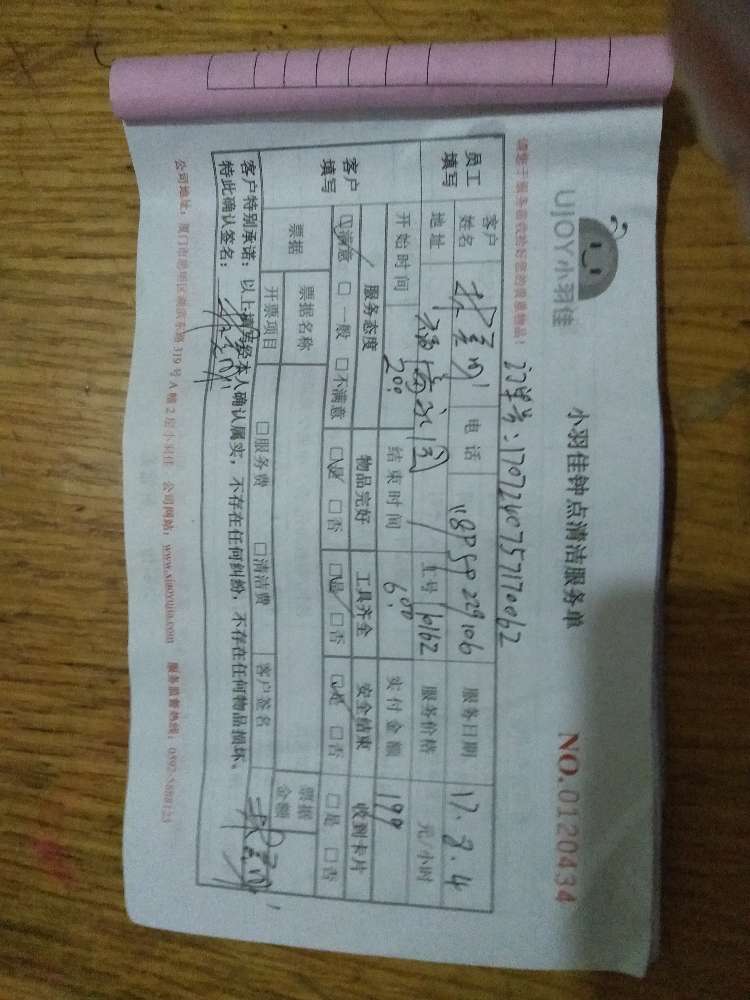 UJOY小羽佳
小羽佳钟点清洁服务单
NO.0120434
请您于服务前收拾好您的贵重物品!
订单号:17072607571170062
员工填写
客户姓名 电话 18959229106 服务日期 17.8.4
地址 工号 10162 服务价格 元/小时
开始时间 2:00 结束时间 6:00 实付金额 199
客户填写
服务态度 物品完好 工具齐全 安全结束 收到卡片
☑满意 □一般 □不满意 ☑是 □否 ☑是 □否 ☑是 □否 □是 □否
票据 票据名称 票据金额
开票项目 □服务费 □清洁费 客户签名
客户特别承诺:以上填写经本人确认属实,不存在任何纠纷,不存在任何物品损坏。
特此确认签名:
公司地址:厦门市思明区湖滨东路319号A幢2层小羽佳 公司网站:www.xiaoyujia.com 服务监督热线:0592-5888123